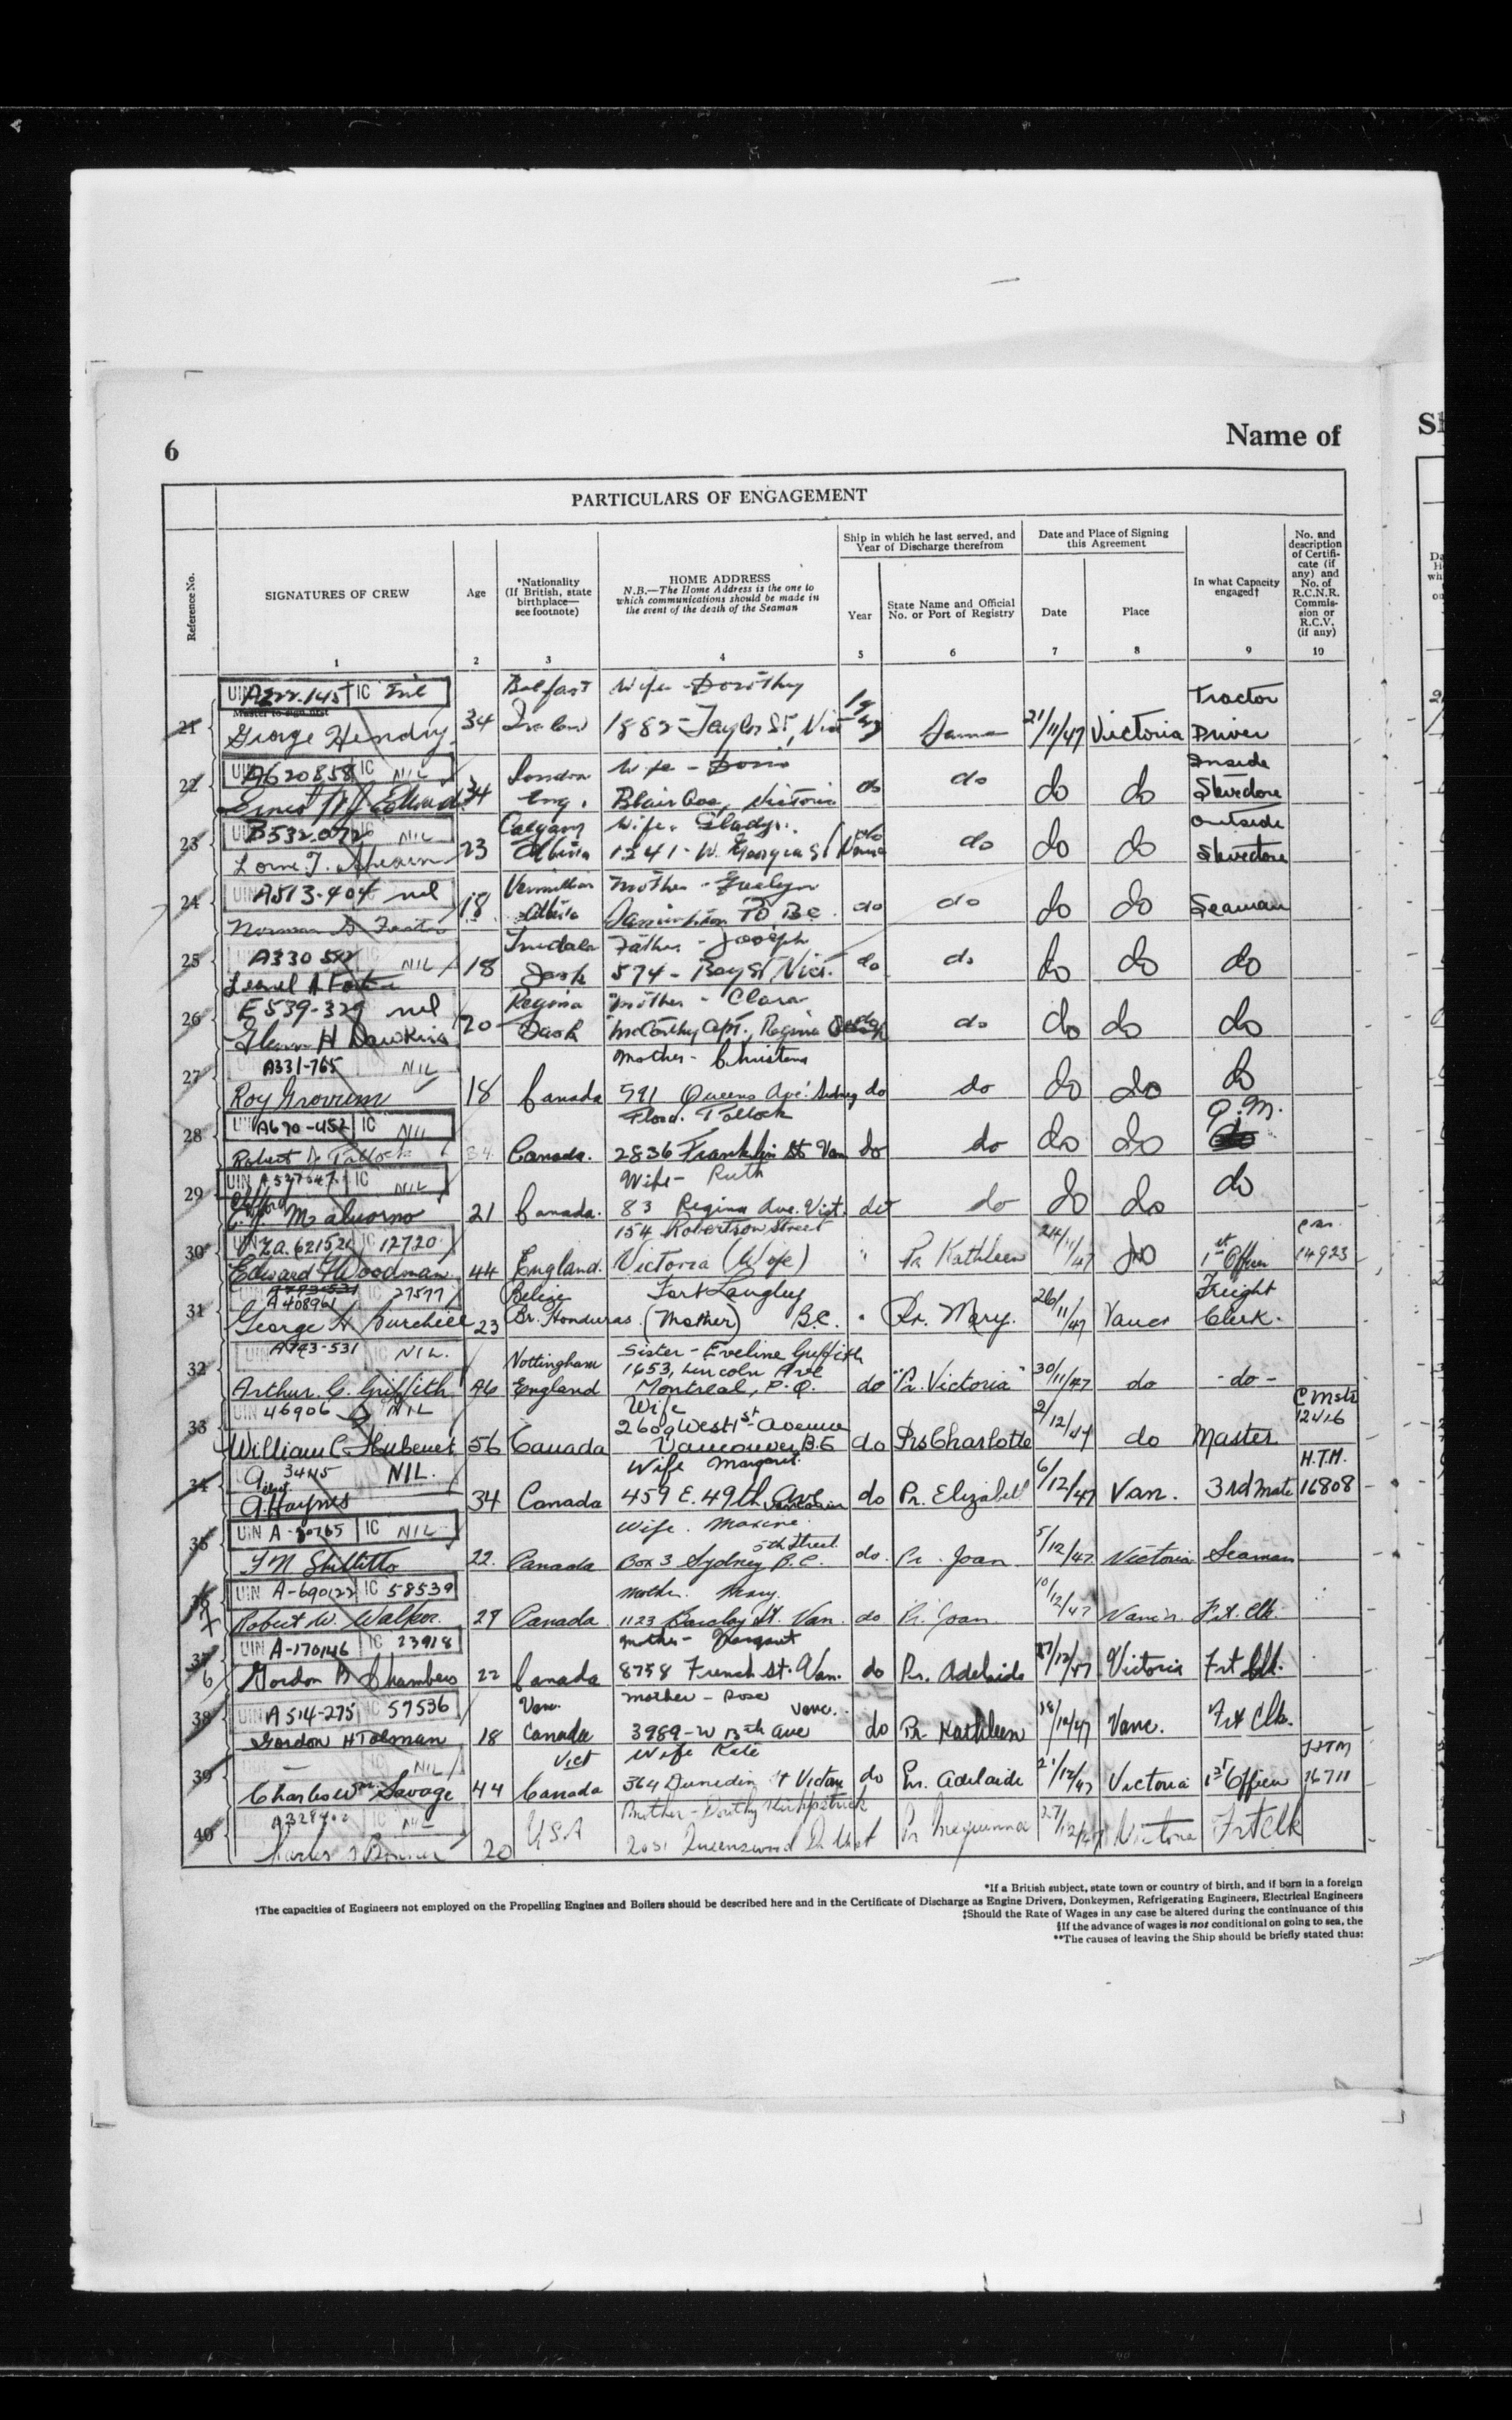 6
Name of
PARTICULARS OF ENGAGEMENT
Reference No.
SIGNATURES OF CREW
Age
*Nationality
(If British, state
birthplace—
see footnote)
HOME ADDRESS
N.B.—The Home Address is the one to
which communications should be made in
the event of the death of the Seaman
Ship in which he last served, and
Year of Discharge therefrom
Year
State Name and Official
No. or Port of Registry
Date and Place of Signing
this Agreement
Date
Place
In what Capacity
engaged†
No. and
description
of Certifi-
cate (if
any) and
No. of
R.C.N.R.
Commis-
sion or
R.C.V.
(if any)
1 2 3 4 5 6 7 8 9 10
UIN A322.145 IC nil Belfast Wife - Dorothy Tractor
21 George Hendry 34 1882 Taylor St, Same 21/11/47 Victoria Driver
UIN A620858 IC NIL London Wife - Doris Inside
22 34 Eng. Blair Ave, Victoria do do do do
B532.072 NIL Calgary Wife. Gladys. do Outside
23 23 Alberta 1241 - W. Georgia St do do do
A513-404 nil Mother - Evelyn
24 Norman 18 Alberta P.O B.C. do do do do Seaman
A330 NIL Father - Joseph
25 18 Sask 574 - Bay St Vict. do do do do do
E539-329 nil Regina Mother - Clara
26 Glenn H Dawkins 20 Sask McCarthy Apt., Regina do do do do
A331-765 NIL Mother - Christena
27 Roy Grovum 18 Canada 591 Queens Ave. Sidney do do do do do
UIN A690-452 IC NIL Tollock Q.M.
28 Robert 34 Canada. 2836 Franklin St Van do do do do
UIN IC NIL Wife - Ruth
29 Clifford 21 Canada. 83 Regina Ave. Vict. do do do do
621521 IC 12720 154 Robertson Street
30 Edward Woodman 44 England. Victoria (Wife) " Pr Kathleen 24/11/47 do 1st Officer 14923
A408961 27577 Belize Fort Langley Freight
31 George H Burchell 23 Br. Honduras (Mother) B.C. " Pr. Mary. 26/11/47 Vanc Clerk.
A793-531 NIL. Nottingham Sister - Eveline Griffith
1653, Lincoln Ave
32 Arthur. C. Griffith 46 England Montreal, P.Q. do "Pr. Victoria" 30/11/47 do -do-
UIN 46906 NIL Wife C Mstr
2609 West 1st Avenue 12416
33 William C Hubenet 56 Canada Vancouver B.C do PrsCharlotte 2/12/47 do Master
NIL. Wife Margaret. H.T.M.
34 A Haynes 34 Canada 459 E. 49th Ave Vancouver do Pr. Elizabeth 6/12/47 Van. 3rd Mate 16808
UIN A-30765 IC NIL Wife. Maxine. 5th Street
35 22. Canada Box 3 Sydney B.C. do. Pr. Joan 5/12/47 Victoria Seaman
UIN A-690122 IC 58539 Mother. Mary.
36 Robert W. Walker. 29 Canada 1123 Barclay St. Van. do Pr. Joan 10/12/47 Frt. Clk.
UIN A-170146 IC 23918 Mother - Margaret
37 Gordon B Chambers 22 Canada 8758 French St. Van. do Pr. Adelaide 17/12/47 Victoria Frt Clk.
UIN A514-275 IC 57536 Van. Mother - Rose Vanc.
38 Gordon H Tolman 18 Canada 3989 - W 13th Ave do Pr. Kathleen 19/12/47 Vanc. Frt Clk.
— NIL Vict Wife Kate
39 Charles Wm. Savage 44 Canada 364 Dunedin St Victoria do Pr. Adelaide 21/12/47 Victoria 1st Officer 16711
NIL Dorothy Kirkpatrick
40 Charles 20 U.S.A Queenswood Pr 27/12/47 Victoria Frt Clk
*If a British subject, state town or country of birth, and if born in a foreign
†The capacities of Engineers not employed on the Propelling Engines and Boilers should be described here and in the Certificate of Discharge as Engine Drivers, Donkeymen, Refrigerating Engineers, Electrical Engineers
‡Should the Rate of Wages in any case be altered during the continuance of this
§If the advance of wages is not conditional on going to sea, the
**The causes of leaving the Ship should be briefly stated thus: